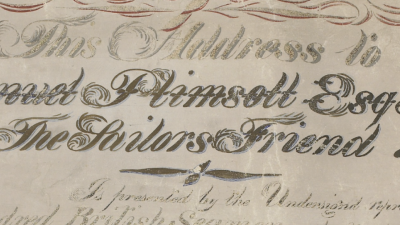 This Address to
muel Plimsoll Esq
The Sailors Friend
Is presented by the Undersigned repr
dred British Seamen